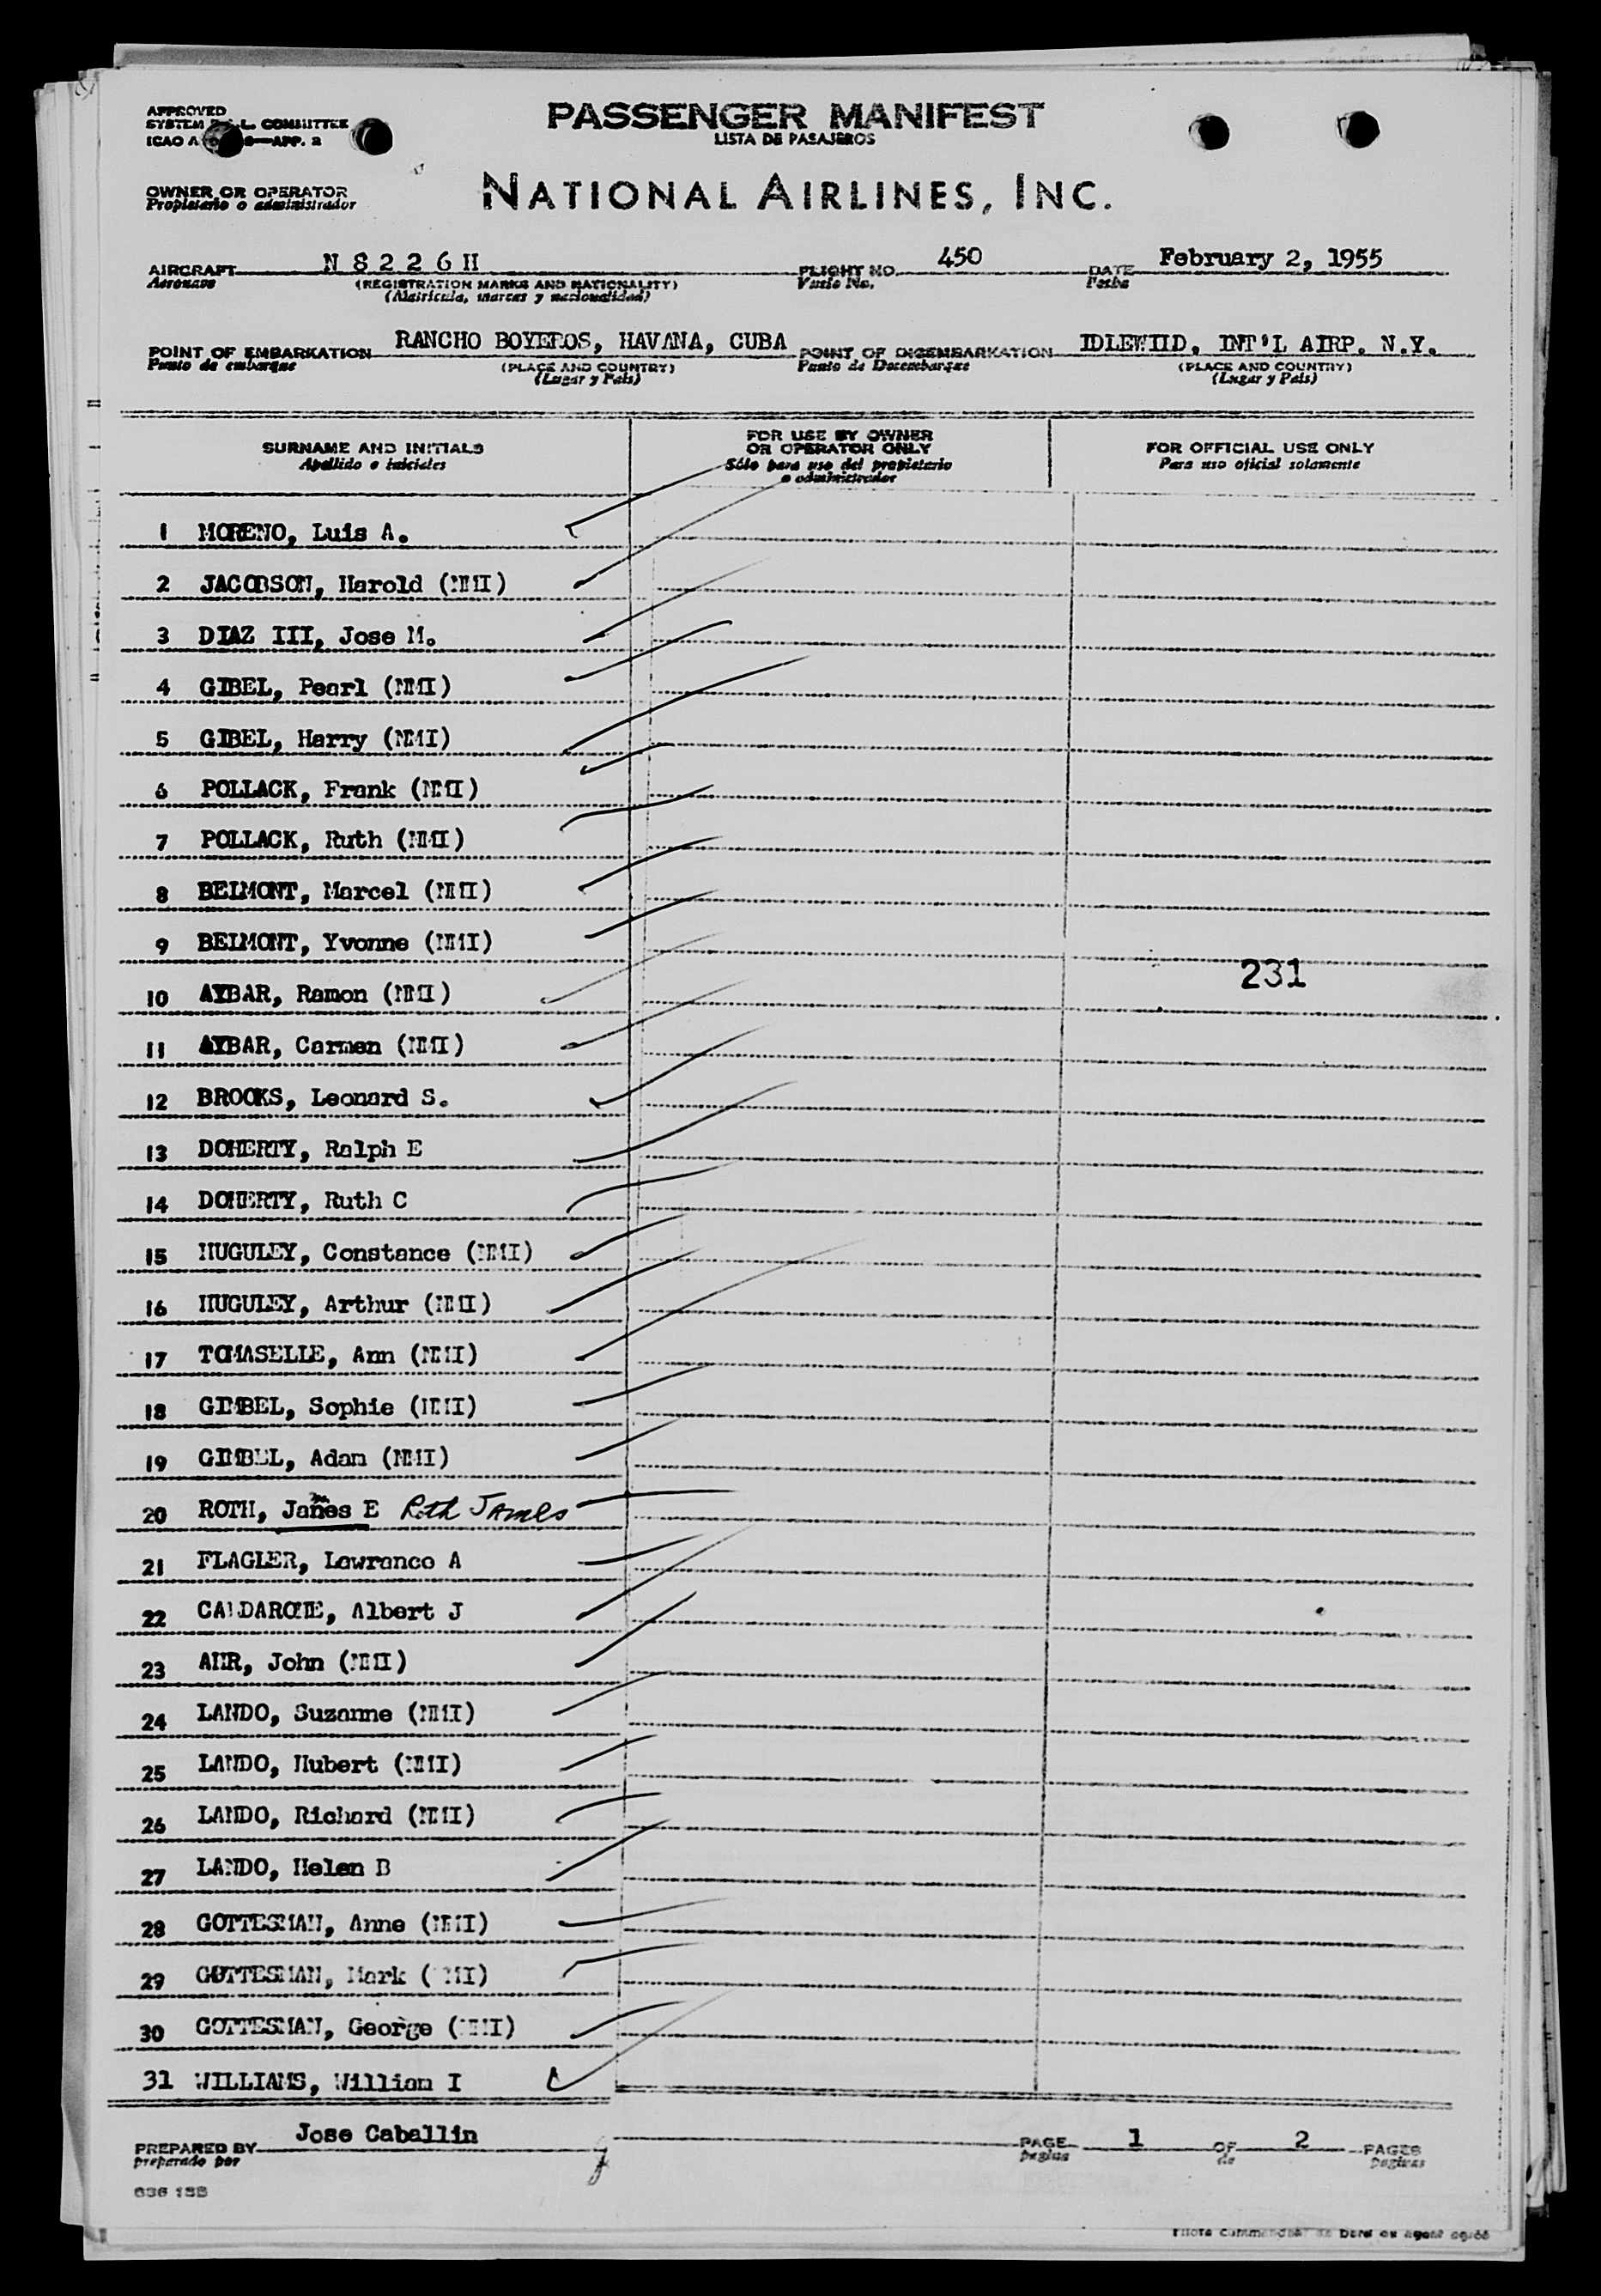 APPROVED
PASSENGER MANIFEST
SYSTEM COMMITTEE
LISTA DE PASAJEROS
ICAO A —APP. 2
OWNER OR OPERATOR
Propietario o administrador
NATIONAL AIRLINES, INC.
AIRCRAFT N 8 2 2 6 H FLIGHT NO. 450 DATE February 2, 1955
Aeronave (REGISTRATION MARKS AND NATIONALITY) Vuelo No. Fecha
(Matricula, marcas y nacionalidad)
POINT OF EMBARKATION RANCHO BOYEROS, HAVANA, CUBA POINT OF DISEMBARKATION IDLEWILD, INT'L AIRP. N.Y.
Punto de embarque (PLACE AND COUNTRY) Punto de Desembarque (PLACE AND COUNTRY)
(Lugar y Pais) (Lugar y Pais)
SURNAME AND INITIALS
Apellido e iniciales
FOR USE BY OWNER
OR OPERATOR ONLY
Sólo para uso del propietario
o administrador
FOR OFFICIAL USE ONLY
Para uso oficial solamente
1 MORENO, Luis A.
2 JACOBSON, Harold (NMI)
3 DIAZ III, Jose M.
4 GIBEL, Pearl (NMI)
5 GIBEL, Harry (NMI)
6 POLLACK, Frank (NMI)
7 POLLACK, Ruth (NMI)
8 BELMONT, Marcel (NMI)
9 BELMONT, Yvonne (NMI)
231
10 AYBAR, Ramon (NMI)
11 AYBAR, Carmen (NMI)
12 BROOKS, Leonard S.
13 DOHERTY, Ralph E
14 DOHERTY, Ruth C
15 HUGULEY, Constance (NMI)
16 HUGULEY, Arthur (NMI)
17 TOMASELLE, Ann (NMI)
18 GIMBEL, Sophie (NMI)
19 GIMBEL, Adam (NMI)
20 ROTH, James E Roth James
21 FLAGLER, Lawrence A
22 CALDARONE, Albert J
23 AHR, John (NMI)
24 LANDO, Suzanne (NMI)
25 LANDO, Hubert (NMI)
26 LANDO, Richard (NMI)
27 LANDO, Helen B
28 GOTTESMAN, Anne (NMI)
29 GOTTESMAN, Mark (NMI)
30 GOTTESMAN, George (NMI)
31 WILLIAMS, William I
PREPARED BY Jose Caballin PAGE 1 OF 2 PAGES
preparado por pagina de paginas
636 13B